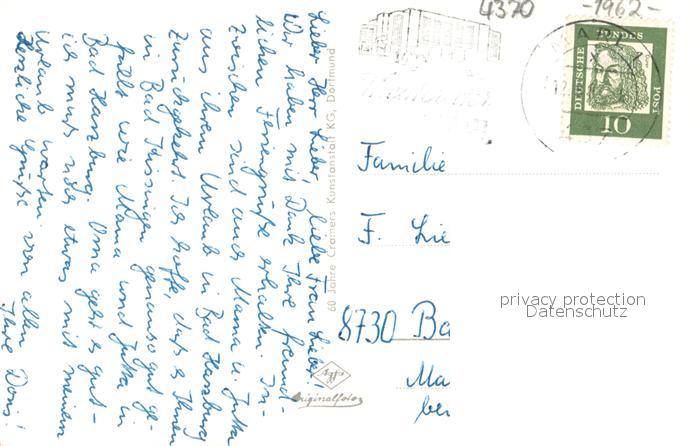 4370 -1962-
DEUTSCHE BUNDES POST
10
Lieber Herr Lieber, liebe Frau Lieber!
Wir haben mit Dank Ihre freund-
lichen Feriengrüße erhalten. In-
zwischen sind auch Mama u. Jutta
aus ihrem Urlaub in Bad Harzburg
zurückgekehrt. Ich hoffe, daß es Ihnen
in Bad Kissingen genauso gut ge-
fällt wie Mama und Jutta in
Bad Harzburg. Oma geht es gut -
ich muß noch etwas mit meinem
Urlaub warten.
Herzliche Grüße von allen
Ihre Doris!
60 Jahre Cramers Kunstanstalt KG, Dortmund
Agfa
Originalfoto
Familie
F. Lie
8730 Ba
Ma
ber
privacy protection
Datenschutz